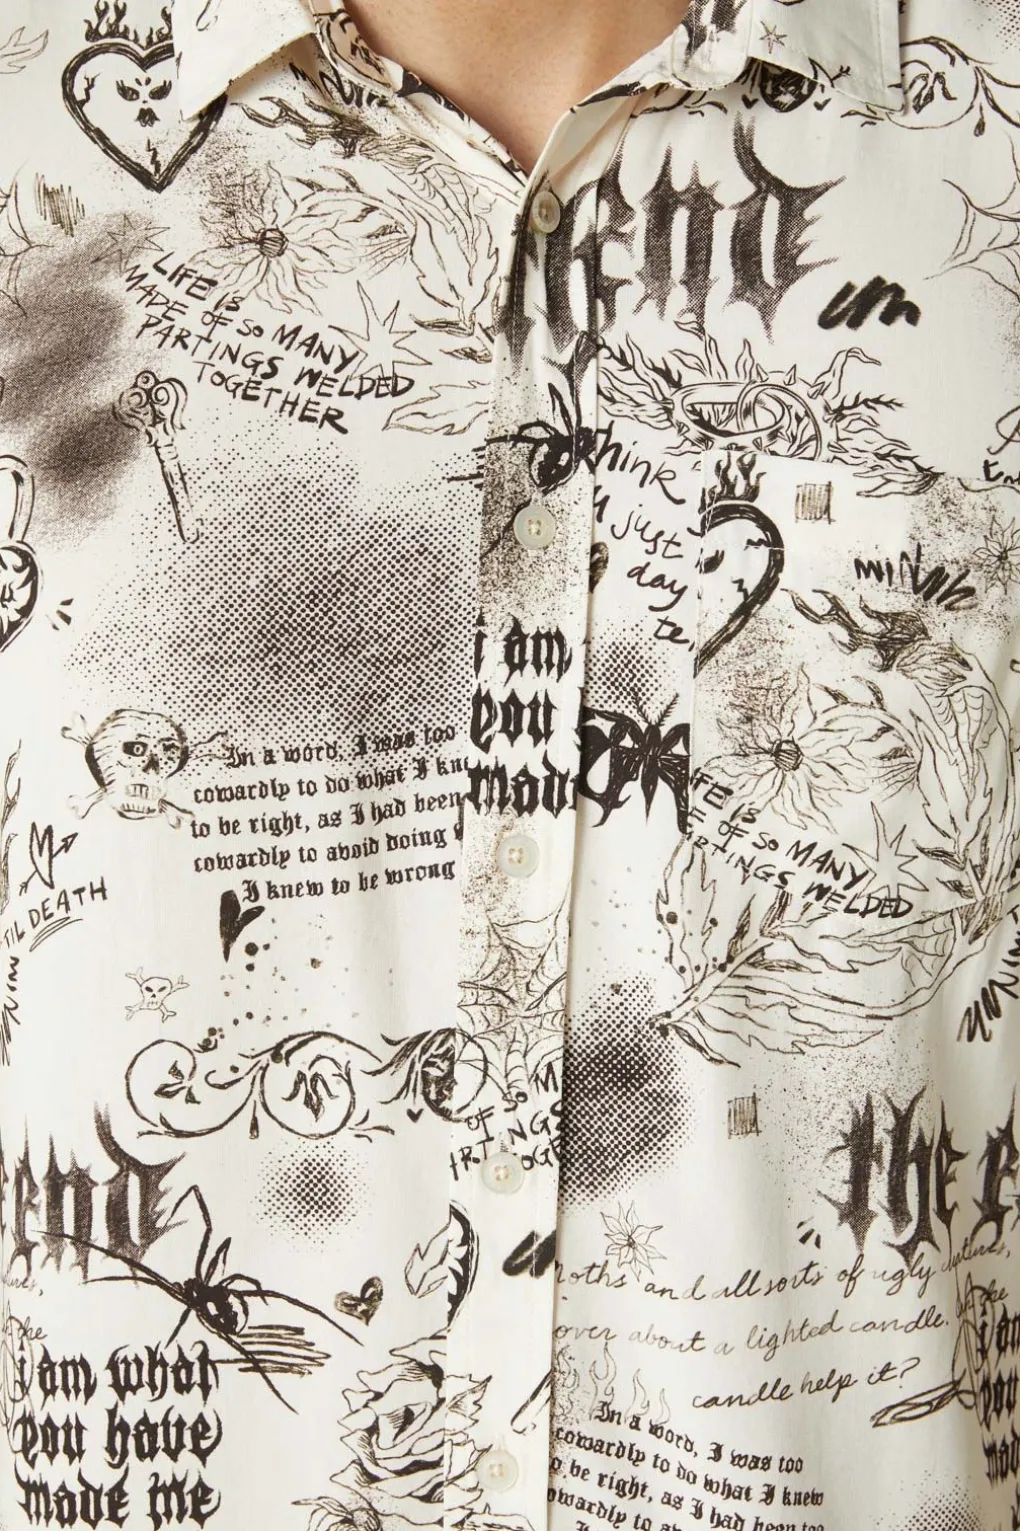 end
LIFE IS
MADE OF SO MANY
PARTINGS WELDED
TOGETHER
think
just
day
te,
i am
you
made
In a word, I was too
cowardly to do what I kne
to be right, as I had been
cowardly to avoid doing
I knew to be wrong
IFE IS
E OF SO MANY
ARTINGS WELDED
TIL DEATH
OF SO M
RTINGS
TOGE
end
the e
moths and all sorts of ugly creatures,
over about a lighted candle.
candle help it?
the
i am what
you have
made me
i am
you
mad
In a word, I was too
cowardly to do what I knew
o be right, as I had been too
owardly to av